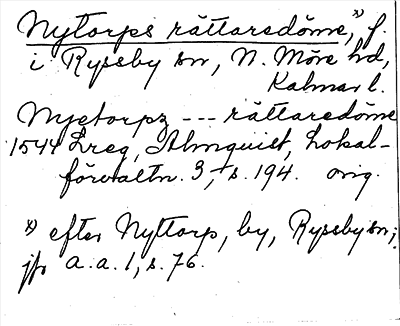 Nytorps rättaredöme,*) f.
i Ryssby sn, N. Möre hd,
Kalmar l.
Nyetorpz --- rättaredöme
1544 Lreg, Almquist, Lokal-
förvaltn. 3, s. 194. orig.
*) efter Nyttorp, by, Ryssby sn;
jfr a.a. 1, s. 76.